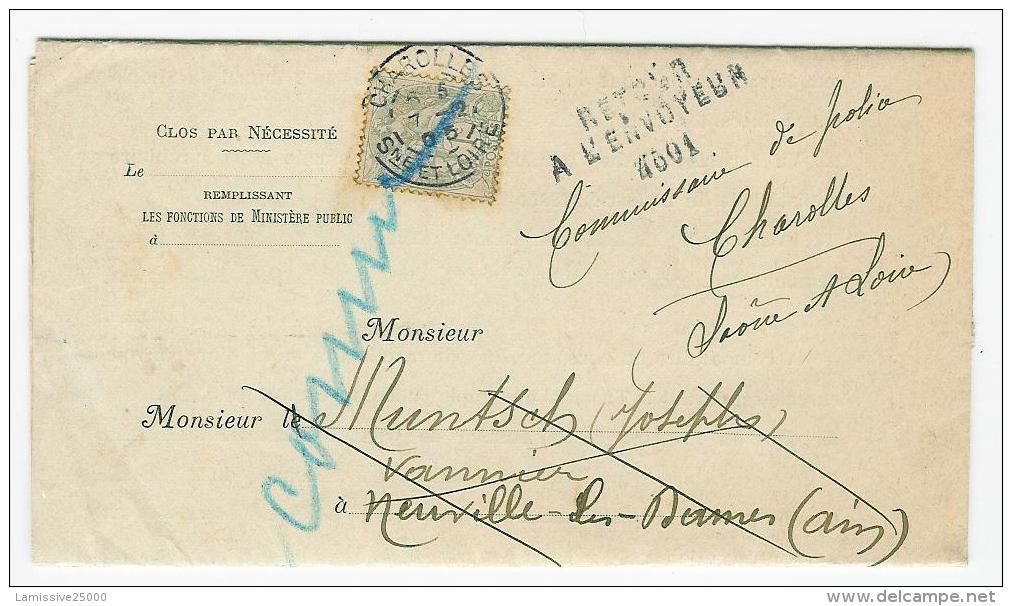 CHAROLLES
SNE ET LOIRE
RETOUR
A L'ENVOYEUR
4501
CLOS PAR NÉCESSITÉ
Le
REMPLISSANT
LES FONCTIONS DE MINISTÈRE PUBLIC
à
Commissaire de police
Charolles
Saône et Loire
Monsieur
Monsieur le Muntsch (Joseph)
Vannier
à Neuville-les-Dames (ain)
Lamissive25000
delcampe.net